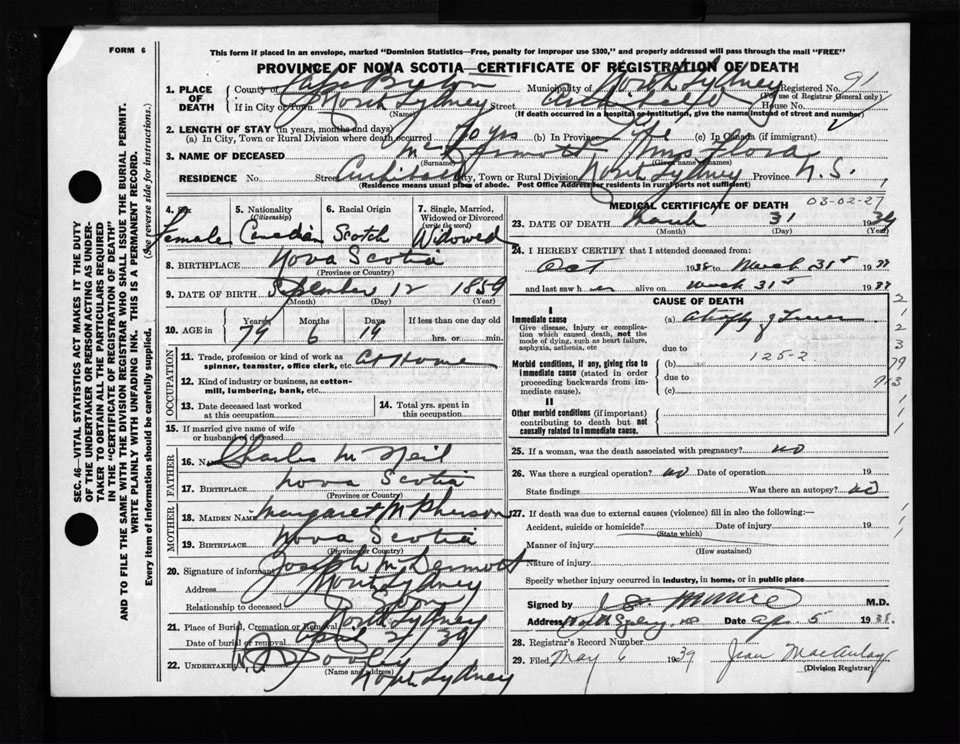 FORM 6
This form if placed in an envelope, marked "Dominion Statistics—Free, penalty for improper use $300," and properly addressed will pass through the mail "FREE"
PROVINCE OF NOVA SCOTIA—CERTIFICATE OF REGISTRATION OF DEATH
1. PLACE OF DEATH County of Cape Breton Municipality of North Sydney Registered No. 91
(For use of Registrar General only)
If in City or Town North Sydney Street Archibald House No.
(Name) (If death occurred in a hospital or institution, give the name instead of street and number)
2. LENGTH OF STAY (in years, months and days)
(a) In City, Town or Rural Division where death occurred 70 yrs (b) In Province Life (c) In Canada (if immigrant)
3. NAME OF DECEASED McDermott Mrs Flora
(Surname) (Given name or names)
RESIDENCE No. Street Archibald City, Town or Rural Division North Sydney Province N.S.
(Residence means usual place of abode. Post Office Address for residents in rural parts not sufficient)
4. Sex 5. Nationality (Citizenship) 6. Racial Origin 7. Single, Married, Widowed or Divorced (write the word)
Female Canadian Scotch Widowed
8. BIRTHPLACE Nova Scotia
(Province or Country)
9. DATE OF BIRTH September 12 1859
(Month) (Day) (Year)
10. AGE in Years Months Days If less than one day old
79 6 19 hrs. or min.
OCCUPATION
11. Trade, profession or kind of work as spinner, teamster, office clerk, etc. At Home
12. Kind of industry or business, as cotton-mill, lumbering, bank, etc.
13. Date deceased last worked at this occupation
14. Total yrs. spent in this occupation
15. If married give name of wife or husband of deceased
FATHER
16. Name Charles McNeil
17. BIRTHPLACE Nova Scotia
(Province or Country)
MOTHER
18. MAIDEN NAME Margaret McPherson
19. BIRTHPLACE Nova Scotia
(Province or Country)
20. Signature of informant Joseph McDermott
Address North Sydney
Relationship to deceased Son
21. Place of Burial, Cremation or Removal North Sydney
Date of burial or removal April 2/39
22. UNDERTAKER Dooley
(Name and address) North Sydney
MEDICAL CERTIFICATE OF DEATH 03-02-27
23. DATE OF DEATH March 31 1939
(Month) (Day) (Year)
24. I HEREBY CERTIFY that I attended deceased from:
Oct 1938 to March 31st 19
and last saw her alive on March 31st 19
CAUSE OF DEATH
I
Immediate cause (a)
Give disease, injury or complication which caused death, not the mode of dying, such as heart failure, asphyxia, asthenia, etc
due to
125-2
Morbid conditions, if any, giving rise to immediate cause (stated in order proceeding backwards from immediate cause). (b)
due to
(c)
II
Other morbid conditions (if important) contributing to death but not causally related to immediate cause.
25. If a woman, was the death associated with pregnancy? no
26. Was there a surgical operation? no Date of operation 19
State findings Was there an autopsy? no
27. If death was due to external causes (violence) fill in also the following:—
Accident, suicide or homicide? Date of injury 19
(State which)
Manner of injury
(How sustained)
Nature of injury
Specify whether injury occurred in industry, in home, or in public place
Signed by M.D.
Address North Sydney, NS Date Apr. 5 1938.
28. Registrar's Record Number
29. Filed May 6 1939 Jean MacAulay
(Division Registrar)
SEC. 46—VITAL STATISTICS ACT MAKES IT THE DUTY OF THE UNDERTAKER OR PERSON ACTING AS UNDERTAKER TO OBTAIN ALL THE PARTICULARS REQUIRED IN THE "CERTIFICATE OF REGISTRATION OF DEATH" AND TO FILE THE SAME WITH THE DIVISION REGISTRAR WHO SHALL ISSUE THE BURIAL PERMIT.
WRITE PLAINLY WITH UNFADING INK. THIS IS A PERMANENT RECORD.
Every item of information should be carefully supplied. (See reverse side for instructions.)